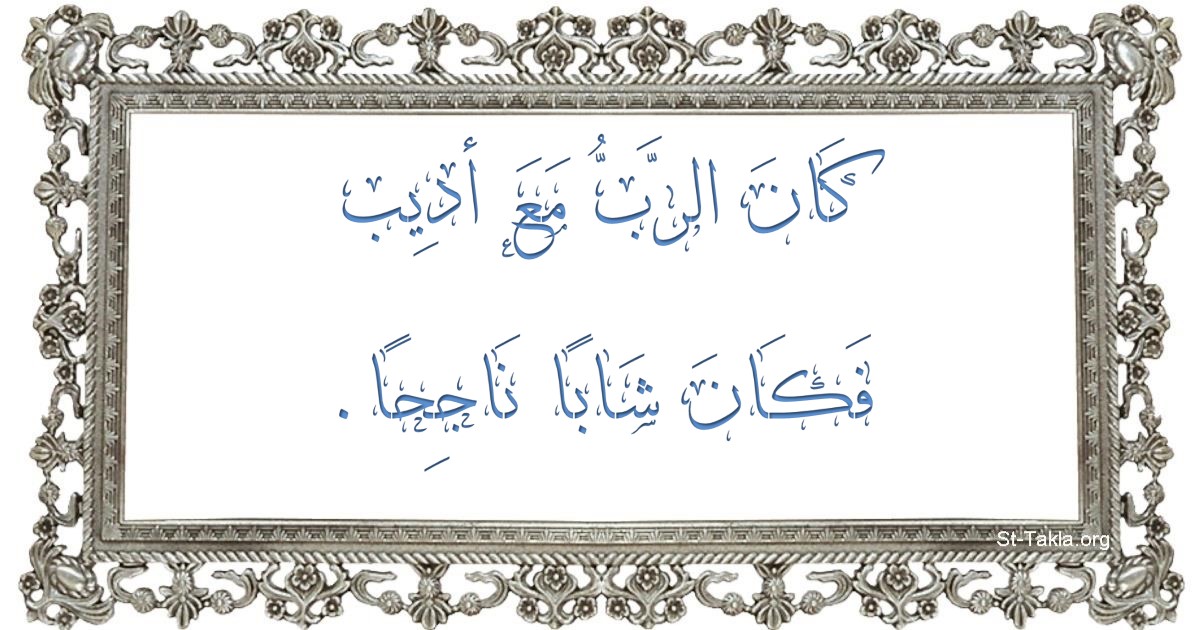 كَانَ الرَّبُّ مَعَ أدِيب
فَكَانَ شَابًا نَاجِحًا .
St-Takla.org